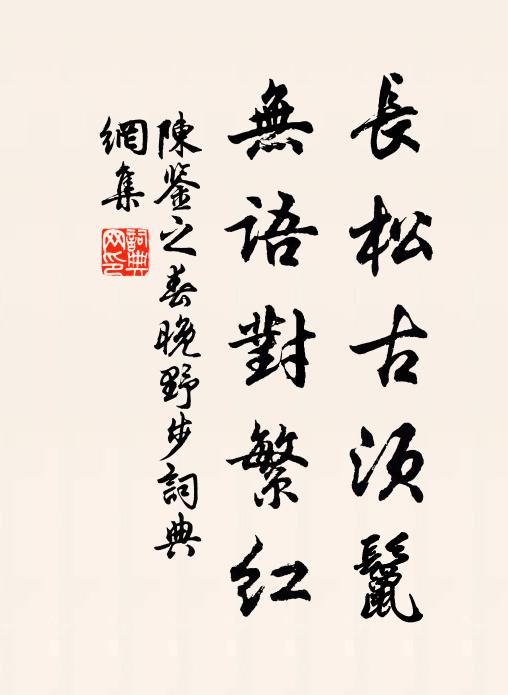 長松古須鬣
無語對繁紅
陳鉴之春晚野步詞典
網集
詞典
网印